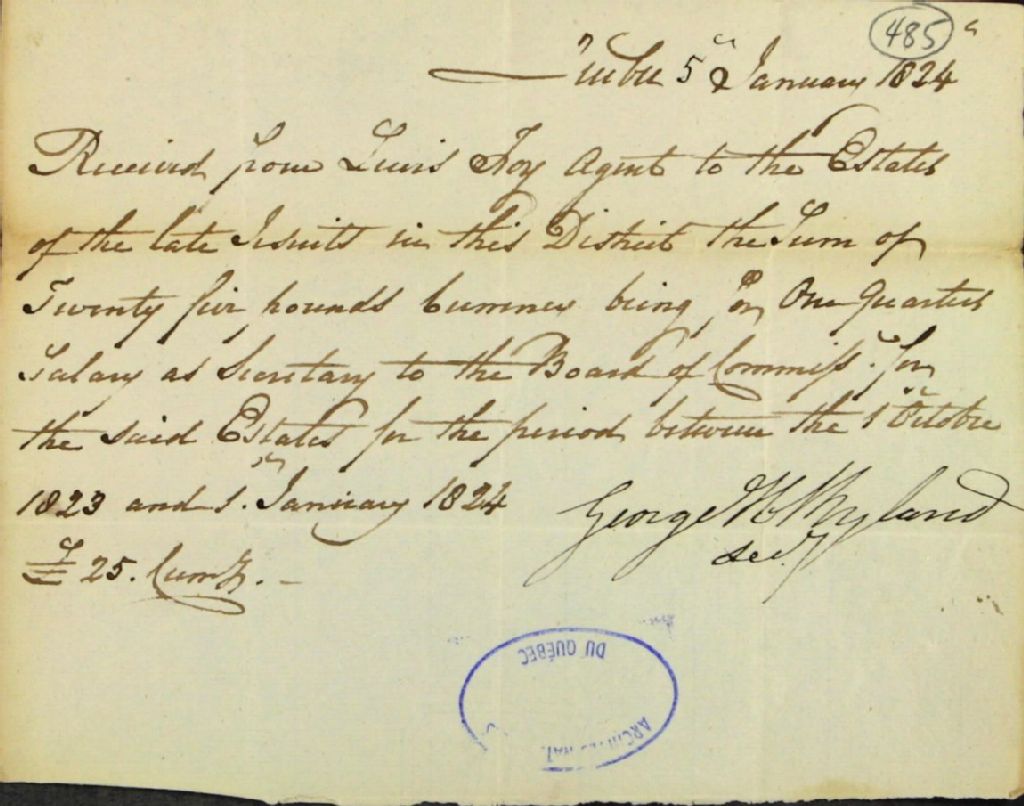 485
Quebec 5th January 1824
Received from Lewis Foy Agent to the Estates
of the late Jesuits in this District the Sum of
Twenty five pounds Currency being for One Quarters
Salary as Secretary to the Board of Commiss. for
the said Estates for the period between the 1st October
1823 and 1. January 1824
George H Ryland
Secy
£ 25. Curry. -
DU QUÉBEC
ARCHIVES NAT